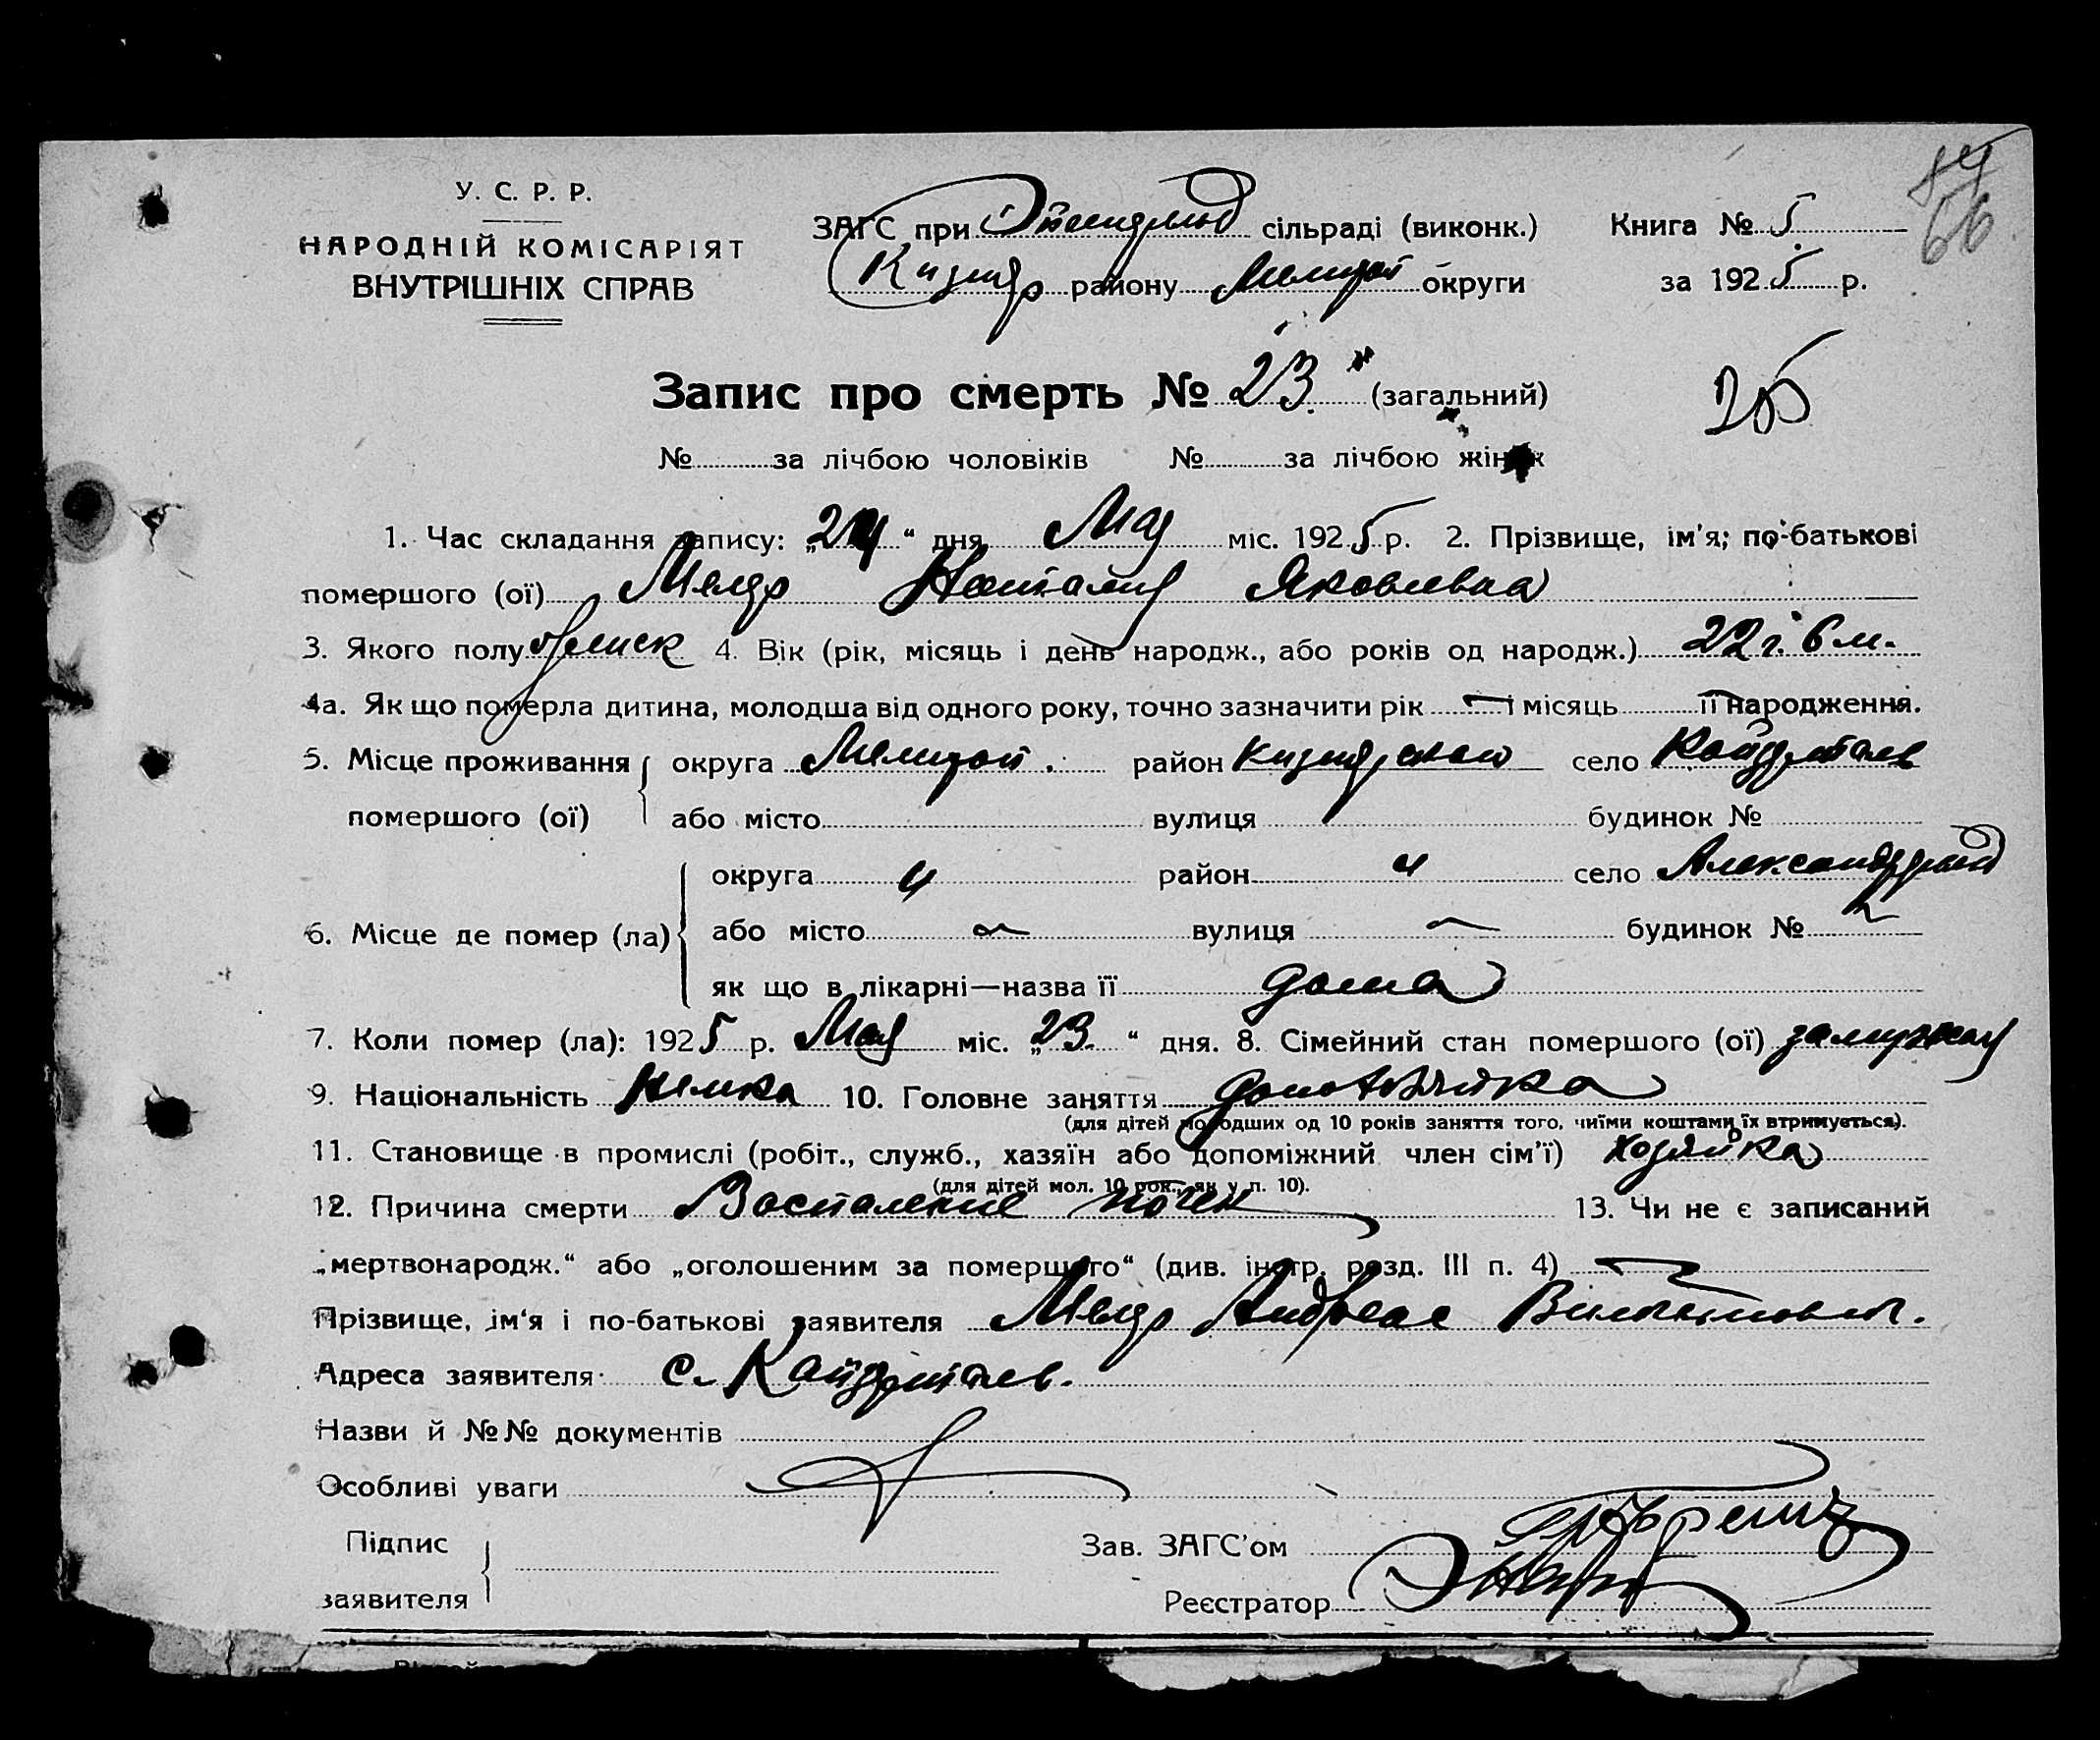 У. С. Р. Р.
НАРОДНІЙ КОМІСАРІЯТ
ВНУТРІШНІХ СПРАВ
ЗАГС при сільраді (виконк.)
району Мелитоп округи
Книга № 5.
за 1925 р.
66
Запис про смерть № 23. (загальний)
№ за лічбою чоловіків № за лічбою жінок
1. Час складання запису: „24“ дня Мая міс. 1925 р. 2. Прізвище, ім'я; по-батькові
помершого (ої) Наталия Яковлевна
3. Якого полу женск 4. Вік (рік, місяць і день народж., або років од народж.) 22 г. 6 м.
4а. Як що померла дитина, молодша від одного року, точно зазначити рік — і місяць її народження.
5. Місце проживання округа Мелитоп. район село
помершого (ої) або місто вулиця будинок №
округа " район " село
6. Місце де помер (ла) або місто — вулиця — будинок №
як що в лікарні—назва її дома
7. Коли помер (ла): 1925 р. Мая міс. „23.“ дня. 8. Сімейний стан помершого (ої) замужняя
9. Національність немка 10. Головне заняття
(для дітей молодших од 10 років заняття того, чиїми коштами їх втримується).
11. Становище в промислі (робіт., служб., хазяїн або допоміжний член сім'ї) хозяйка
(для дітей мол. 10 рок., як у п. 10).
12. Причина смерти Воспаление почек 13. Чи не є записаний
„мертвонародж.“ або „оголошеним за помершого“ (див. інстр. розд. III п. 4) —
Прізвище, ім'я і по-батькові заявителя Андреас
Адреса заявителя с.
Назви й №№ документів
Особливі уваги
Підпис
заявителя
Зав. ЗАГС'ом
Реєстратор